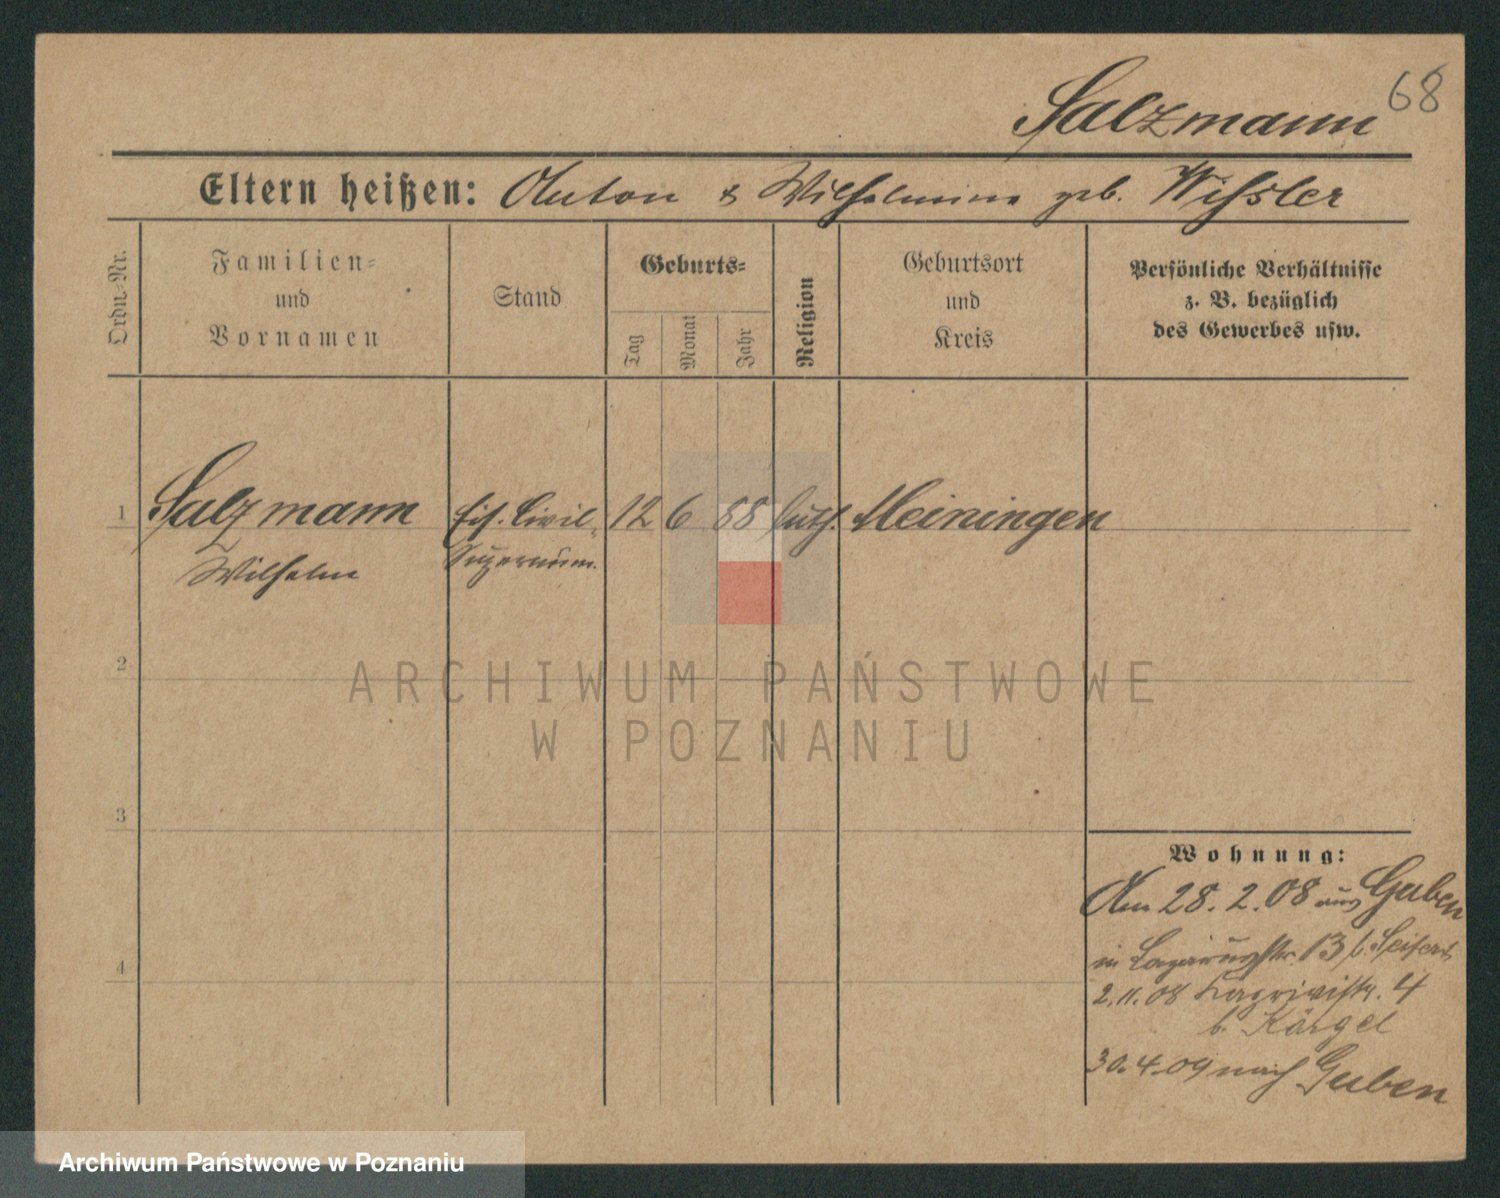 68
Salzmann
Eltern heißen: Anton & Wilhelmine geb. Wißler
Ordn.-Nr.
Familien-
und
Vornamen
Stand
Geburts-
Tag
Monat
Jahr
Religion
Geburtsort
und
Kreis
Persönliche Verhältnisse
z. B. bezüglich
des Gewerbes usw.
1 Salzmann Eis. Civil- 12 6 88 luth. Meiningen
Wilhelm Supernum.
2
ARCHIWUM PAŃSTWOWE
W POZNANIU
3
Wohnung:
Am 28. 2. 08 aus Guben
in 13 b. Seifert
4
2. 11. 08 4
b. Kärgel
30. 4. 09 nach Guben
Archiwum Państwowe w Poznaniu